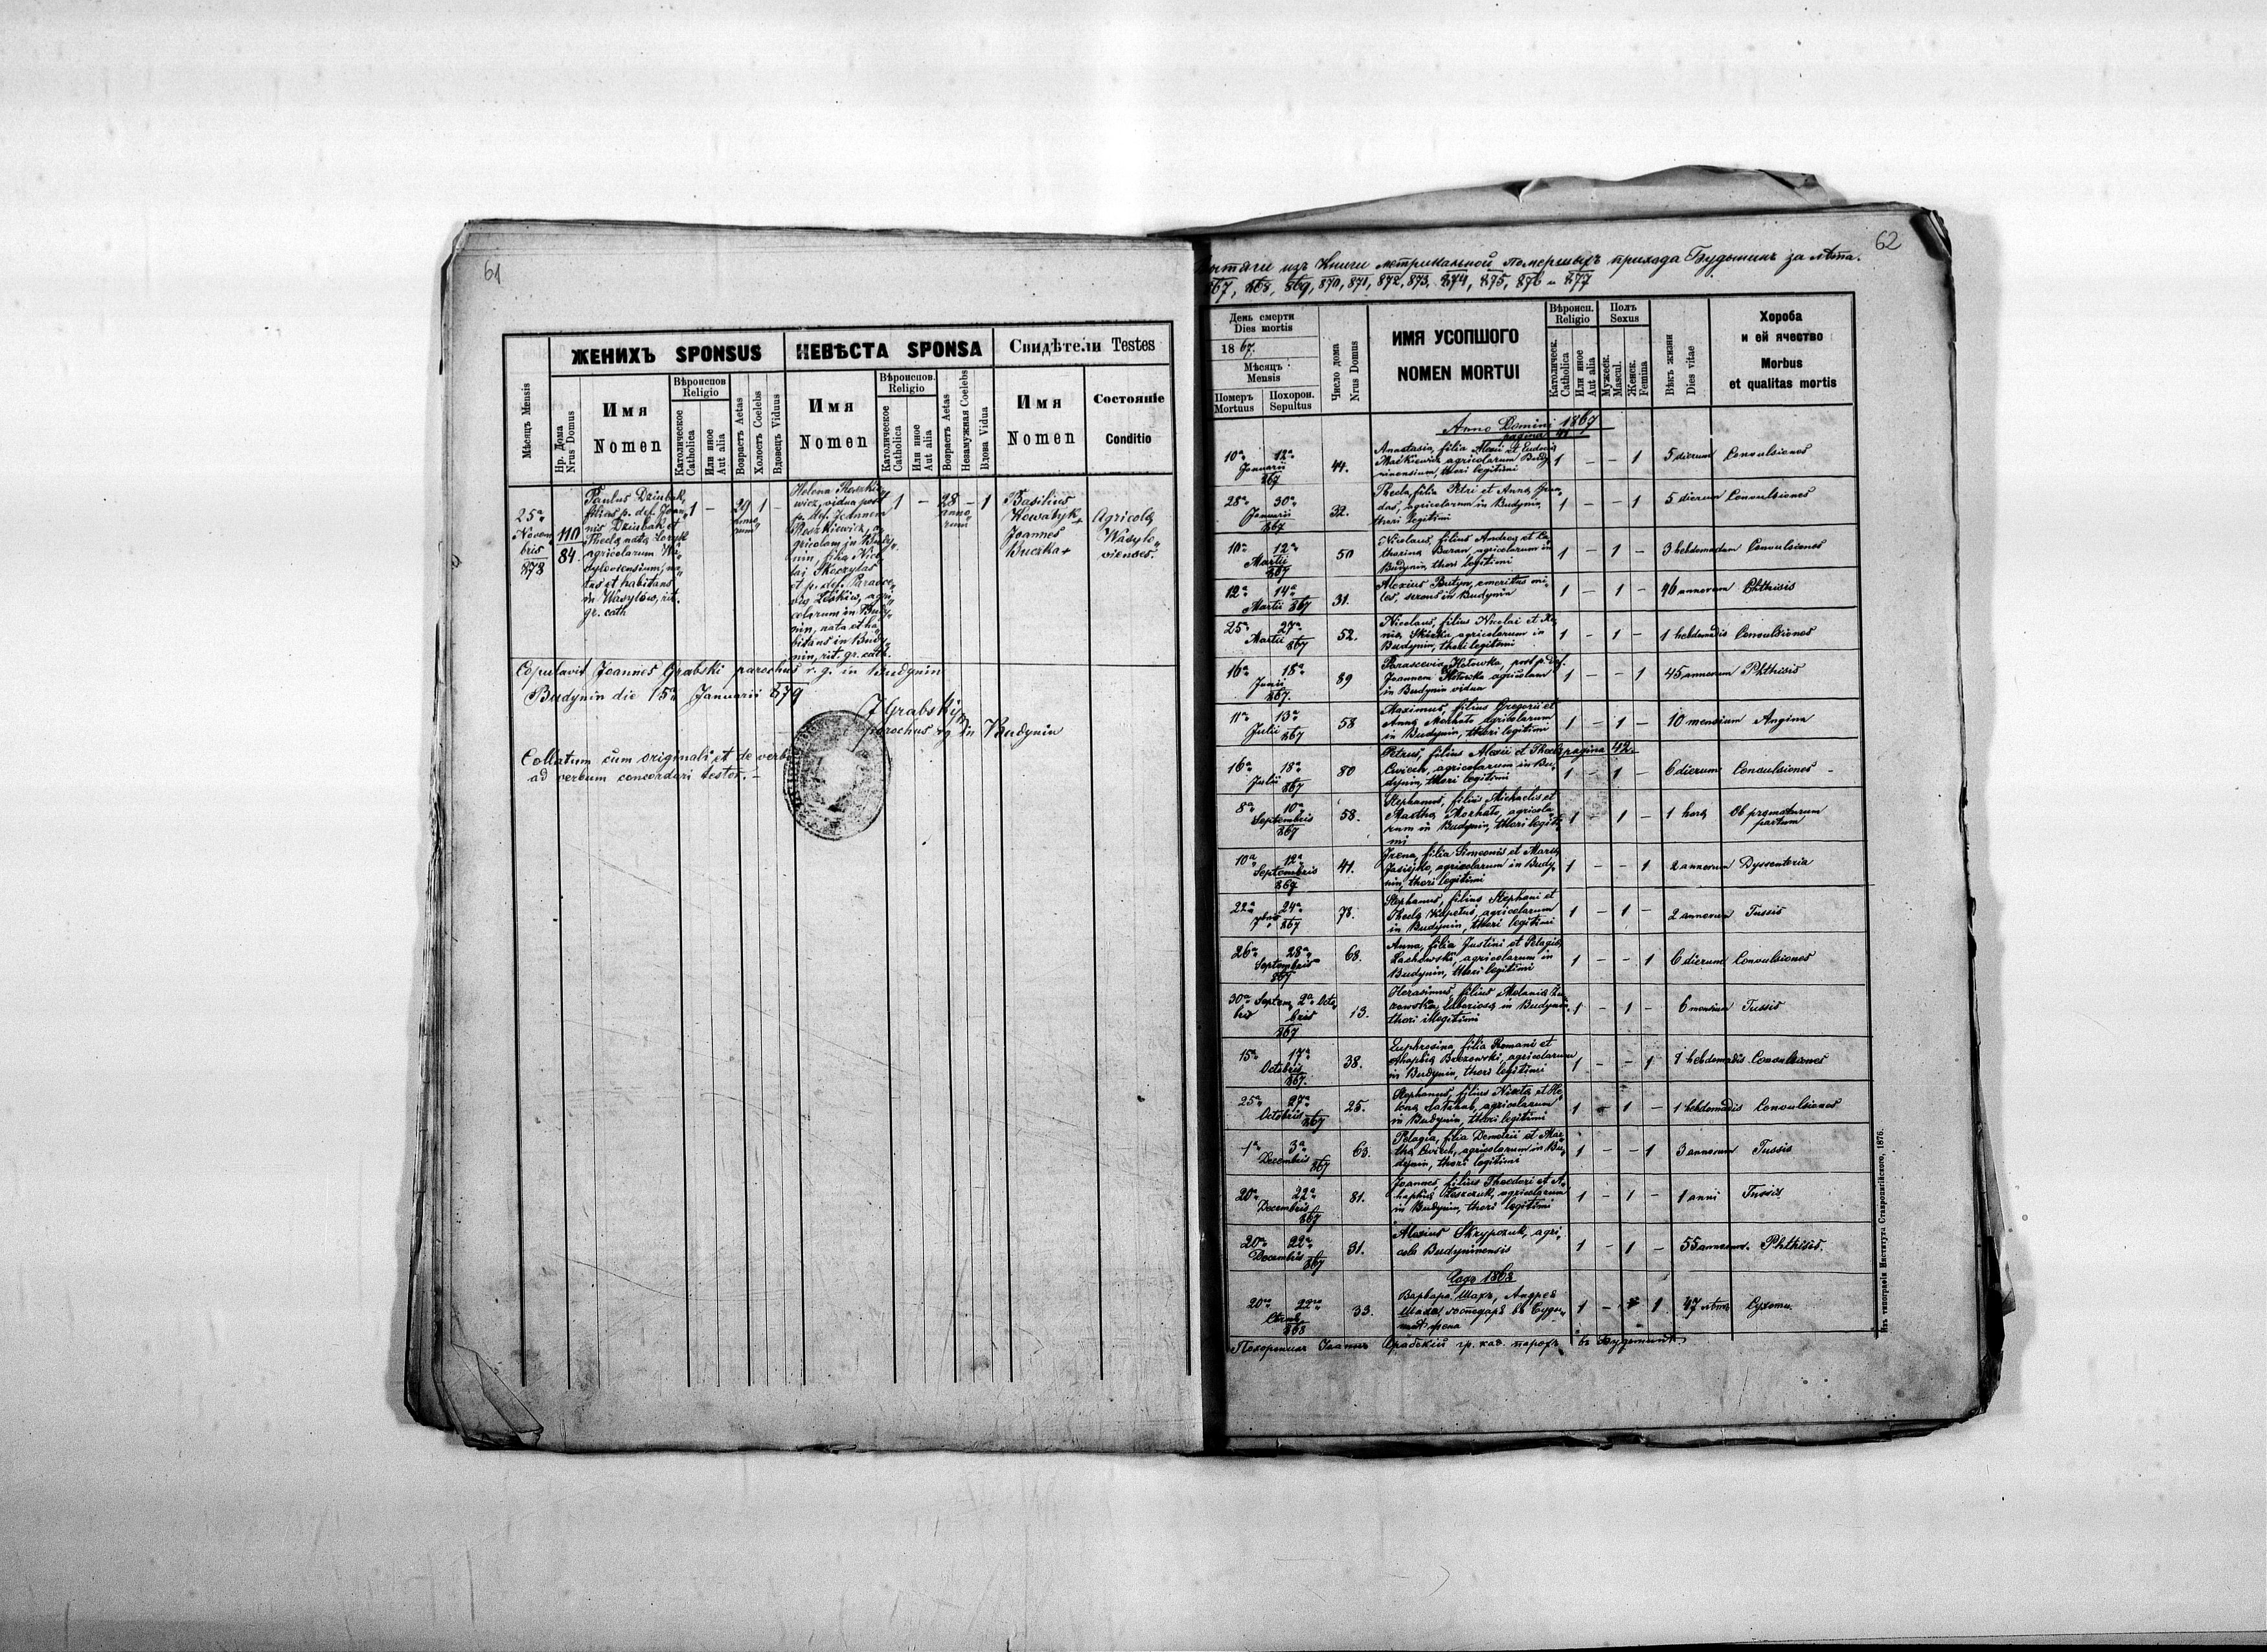 61
ЖЕНИХЪ SPONSUS
НЕВѢСТА SPONSA
Свидѣтели Testes
Мѣсяцъ Mensis
Нр. Дома Nrus Domus
Имя
Nomen
Вѣроиспов
Religio
Католическое Catholica
Или иное Aut alia
Возрастъ Aetas
Холостъ Coelebs
Вдовецъ Viduus
Имя
Nomen
Вѣроиспов.
Religio
Католическое Catholica
Или иное Aut alia
Возрастъ Aetas
Незамужная Coelebs
Вдова Vidua
Имя
Nomen
Состоянie
Conditio
25a
Novem
bris
878
110
84.
Paulus Dziubak,
filius p. def. Joan,
nis Dziubak, et
Thecla nata
agricolarum Wa,
syloviensium, na,
tus et habitans
in Wasylów, rit.
gr. cath.
1
–
29
anno
rum
1
–
Helena Reszkie,
wicz, vidua post
p. def. Joannem
Reszkiewicz, a,
gricolam in Budy,
nin, filia Nico,
lai
et p. def. Parasce,
via agri,
colarum in Budy,
nin, nata et ha,
bitans in Budy,
nin, rit. gr. cath.
1
–
28
anno
rum
–
1
Basilius
Kowalyk +
Joannes
Buczka +
Agricolæ
Wasylo,
vienses.
Copulavit Joannes Grabski parochus r. g. in Budynin
Budynin die 15a Januarii 879
J Grabski
parochus rg in Budynin
Collatum cum originali et de verbo
ad verbum concordari testor. –
62
изъ Книги метрикальной помершихъ прихода Будынинъ за лѣта.
867, 868, 869, 870, 871, 872, 873, 874, 875, 876 и 877
День смерти
Dies mortis
18 67.
Мѣсяцъ
Mensis
Померъ Mortuus
Похорон. Sepultus
Число дома Nrus Domus
ИМЯ УСОПШОГО
NOMEN MORTUI
Вѣроисп.
Religio
Католическ. Catholica
Или иное Aut alia
Полъ
Sexus
Мужеск. Mascul.
Женск. Femina
Вѣкъ жизни Dies vitae
Хороба
и ей ячество
Morbus
et qualitas mortis
Anno Domini 1867
pagina 41
10a 12a Januarii 867 44. Anastasia, filia Alexii et Eudociæ
Maćkiewicz agricolarum Budy,
ninensium, thori legitimi 1 – – 1 5 dierum Convulsiones
28a 30a Januarii 867 32. Thecla, filia Petri et Annæ
agricolarum in Budynin,
thori legitimi 1 – – 1 5 dierum Convulsiones
10a 12a Martii 867 50 Nicolaus, filius Andreæ et Ca,
tharinæ Baran, agricolarum in
Budynin, thori legitimi 1 – 1 – 3 hebdomadum Convulsiones
12a 14a Martii 867 31. Alexius Butyn, emeritus mi,
les, in Budynin 1 – 1 – 46 annorum Phthisis
25a 27a Martii 867 52. Nicolaus, filius Nicolai et Xe,
niæ agricolarum in
Budynin, thori legitimi 1 – 1 – 1 hebdomadis Convulsiones
16a 18a Junii 867. 89 Parascevia Hotowka, post p. def.
Joannem Hotowka agricolam
in Budynin vidua 1 – – 1 45 annorum Phthisis
11a 13a Julii 867 58 Maximus, filius Gregorii et
Annæ agricolarum
in Budynin, thori legitimi 1 – 1 – 10 mensium Angina
pagina 42.
16a 18a Julii 867 80 Petrus, filius Alexii et Theclæ
Cwioch, agricolarum in Bu,
dynin, thori legitimi 1 – 1 – 6 dierum Convulsiones –
8a 10a Septembris 867 58. Stephanus, filius Michaelis et
Marthæ agricola
rum in Budynin, thori legiti,
mi 1 – 1 – 1 hora Ob præmaturum
partum
10a 12a Septembris 867 41. Irena, filia Simeonis et Mariæ
agricolarum in Budy,
nin, thori legitimi 1 – – 1 2 annorum Dyssenteria
22a 24a 7bris 867 78. Stephanus, filius Stephani et
Theclæ Kapetus, agricolarum
in Budynin, thori legitimi 1 – 1 – 2 annorum Tussis
26a 28a Septembris 867 68. Anna, filia Justini et Pelagiæ
Lachowski, agricolarum in
Budynin, thori legitimi 1 – – 1 6 dierum Convulsiones
30a Septem bris 2a Octo, bris 867 13. Herasimus, filius Melaniæ
in Budynin,
thori illegitimi 1 – 1 – 6 mensium Tussis
15a 17a Octobris 867. 38. Euphrosina, filia Romani et
Ahaphiæ Brzozowski, agricolarum
in Budynin, thori legitimi 1 – – 1 1 hebdomadis Convulsiones
25a 27a Octobris 867 25. Stephanus, filius Nicetæ et He,
lenæ agricolarum
in Budynin, thori legitimi 1 – 1 – 1 hebdomadis Convulsiones
1a 3a Decembris 867 63. Pelagia, filia Demetrii et Mar,
thæ Cwioch, agricolarum in Bu,
dynin, thori legitimi 1 – – 1 3 annorum Tussis
20a 22a Decembris 867 81. Joannes, filius Theodori et A,
haphiæ agricolarum
in Budynin, thori legitimi 1 – 1 – 1 anni Tussis
20a 22a Decembris 867 31. Alexius Skrypczuk, agri,
cola Budyninensis 1 – 1 – 55 annorum. Phthisis.
Годъ 1868
20го 22го 868 33. Варвара Шахъ, Андрея
Шаха господаря въ Буды,
нинѣ жена 1 – 1 47 лѣтъ Сухоты.
Похоронилъ Іоаннъ Грабскій гр. кат. парохъ въ Будынинѣ
Изъ типографіи Института Ставропигійского, 1876.